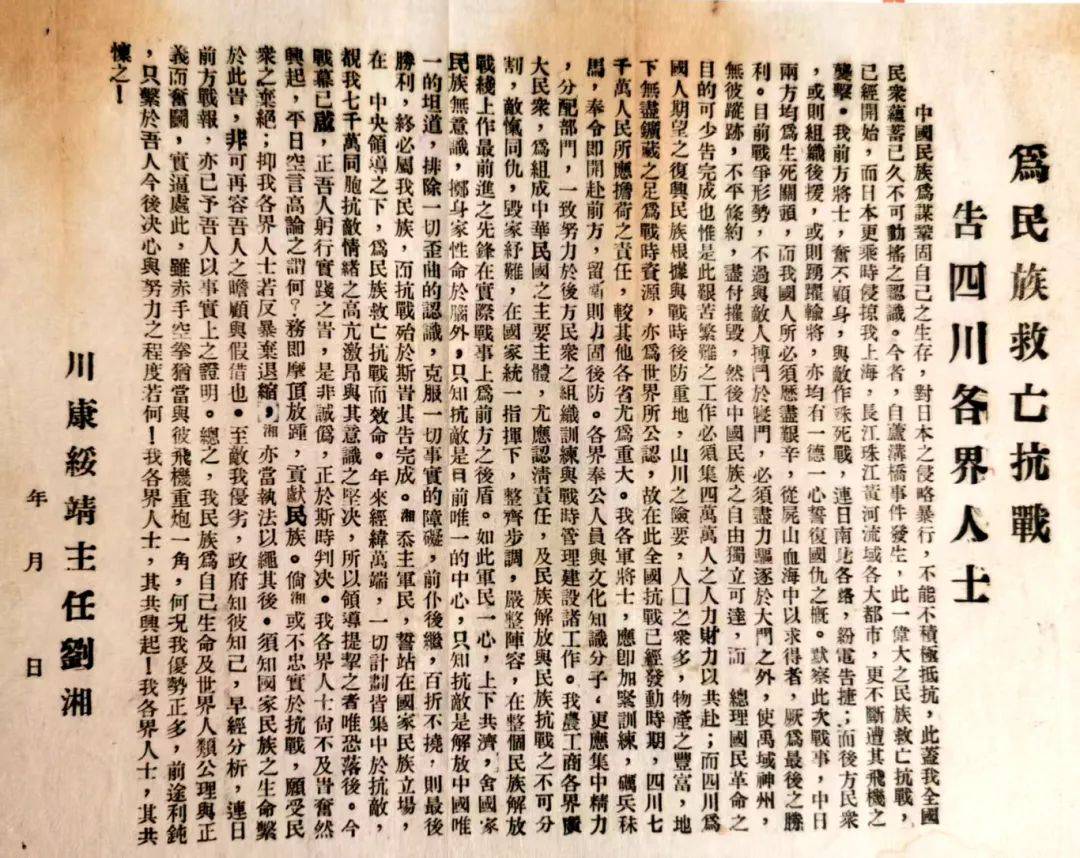 爲民族救亡抗戰
告四川各界人士
中國民族爲謀鞏固自己之生存，對日本之侵略暴行，不能不積極抵抗，此蓋我全國
民衆蘊蓄已久不可動搖之認識。今者，自蘆溝橋事件發生，此一偉大之民族救亡抗戰，
已經開始，而日本更乘時侵掠我上海，長江珠江黃河流域各大都市，更不斷遭其飛機之
襲擊。我前方將士，奮不顧身，與敵作殊死戰，連日南北各路，紛電告捷；而後方民衆
，或則組織後援，或則踴躍輸將，亦均有一德一心誓復國仇之慨。默察此次戰事，中日
兩方均爲生死關頭，而我國人所必須歷盡艱辛，從屍山血海中以求得者，厥爲最後之勝
利。目前戰爭形勢，不過與敵人搏鬥於寢門，必須盡力驅逐於大門之外，使禹域神州，
無彼蹤跡，不平條約，盡付摧毀，然後中國民族之自由獨立可達，而　總理國民革命之
目的可少告完成也惟是此艱苦繁難之工作必須集四萬萬人之人力財力以共赴；而四川爲
國人期望之復興民族根據與戰時後防重地，山川之險要，人口之衆多，物產之豐富，地
下無盡鑛藏之足爲戰時資源，亦爲世界所公認，故在此全國抗戰已經發動時期，四川七
千萬人民所應擔荷之責任，較其他各省尤爲重大。我各軍將士，應卽加緊訓練，礪兵秣
馬，奉令卽開赴前方，留則力固後防。各界奉公人員與文化知識分子，更應集中精力
，分配部門，一致努力於後方民衆之組織訓練與戰時管理建設諸工作。我農工商各界廣
大民衆，爲組成中華民國之主要主體，尤應認清責任，及民族解放與民族抗戰之不可分
割，敵愾同仇，毀家紓難，在國家統一指揮下，整齊步調，嚴整陣容，在整個民族解放
戰綫上作最前進之先鋒在實際戰事上爲前方之後盾。如此軍民一心，上下共濟，舍國家
民族無意識，擲身家性命於腦外，只知抗敵是目前唯一的中心，只知抗敵是解放中國唯
一的坦道，排除一切歪曲的認識，克服一切事實的障礙，前仆後繼，百折不撓，則最後
勝利，終必屬我民族，而抗戰殆於斯旹其告完成。湘忝主軍民，誓站在國家民族立場，
在　中央領導之下，爲民族救亡抗戰而效命。年來經緯萬端，一切計劃皆集中於抗敵，
覩我七千萬同胞抗敵情緒之高亢激昂與其意識之堅決，所以領導提挈之者唯恐落後。今
戰幕已啟，正吾人躬行實踐之旹，是非誠僞，正於斯時判决。我各界人士尙不及旹奮然
興起，平日空言高論之謂何？務卽摩頂放踵，貢獻民族。倘湘或不忠實於抗戰，願受民
衆之棄絕；抑我各界人士若反暴棄退縮，湘亦當執法以繩其後。須知國家民族之生命繫
於此旹，非可再容吾人之瞻顧與假借也。至敵我優劣，政府知彼知己，早經分析，連日
前方戰報，亦已予吾人以事實上之證明。總之，我民族爲自己生命及世界人類公理與正
義而奮鬭，實逼處此，雖赤手空拳猶當與彼飛機重炮一角，何况我優勢正多，前途利鈍
，只繫於吾人今後决心與努力之程度若何！我各界人士，其共興起！我各界人士，其共
懔之！
川康綏靖主任劉湘
年　月　日